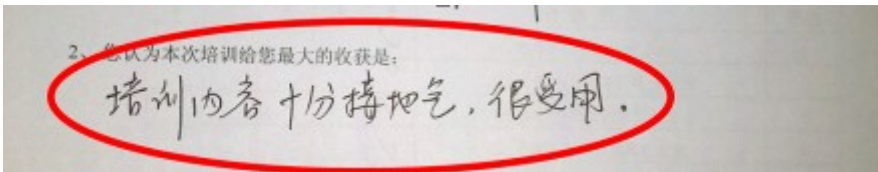 2、您认为本次培训给您最大的收获是：
培训内容十分接地气，很受用．